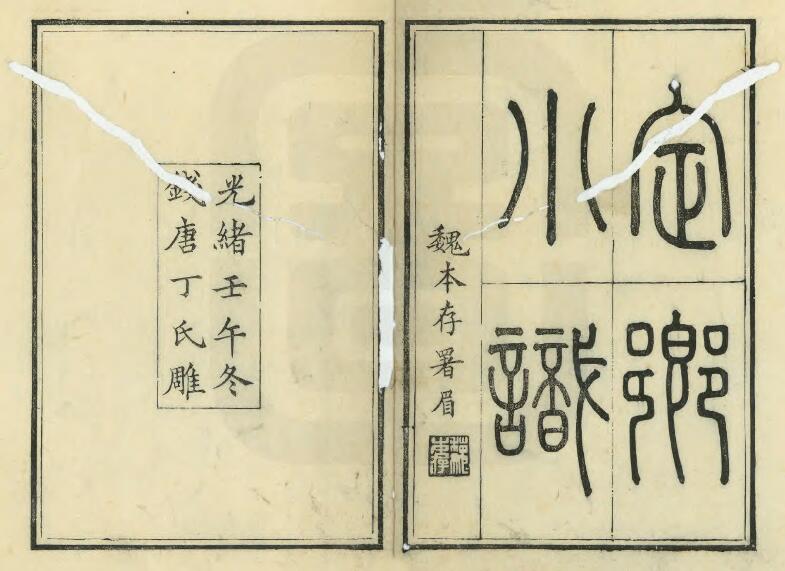 定鄉
小識
魏本存署眉
光緒壬午冬
錢唐丁氏雕